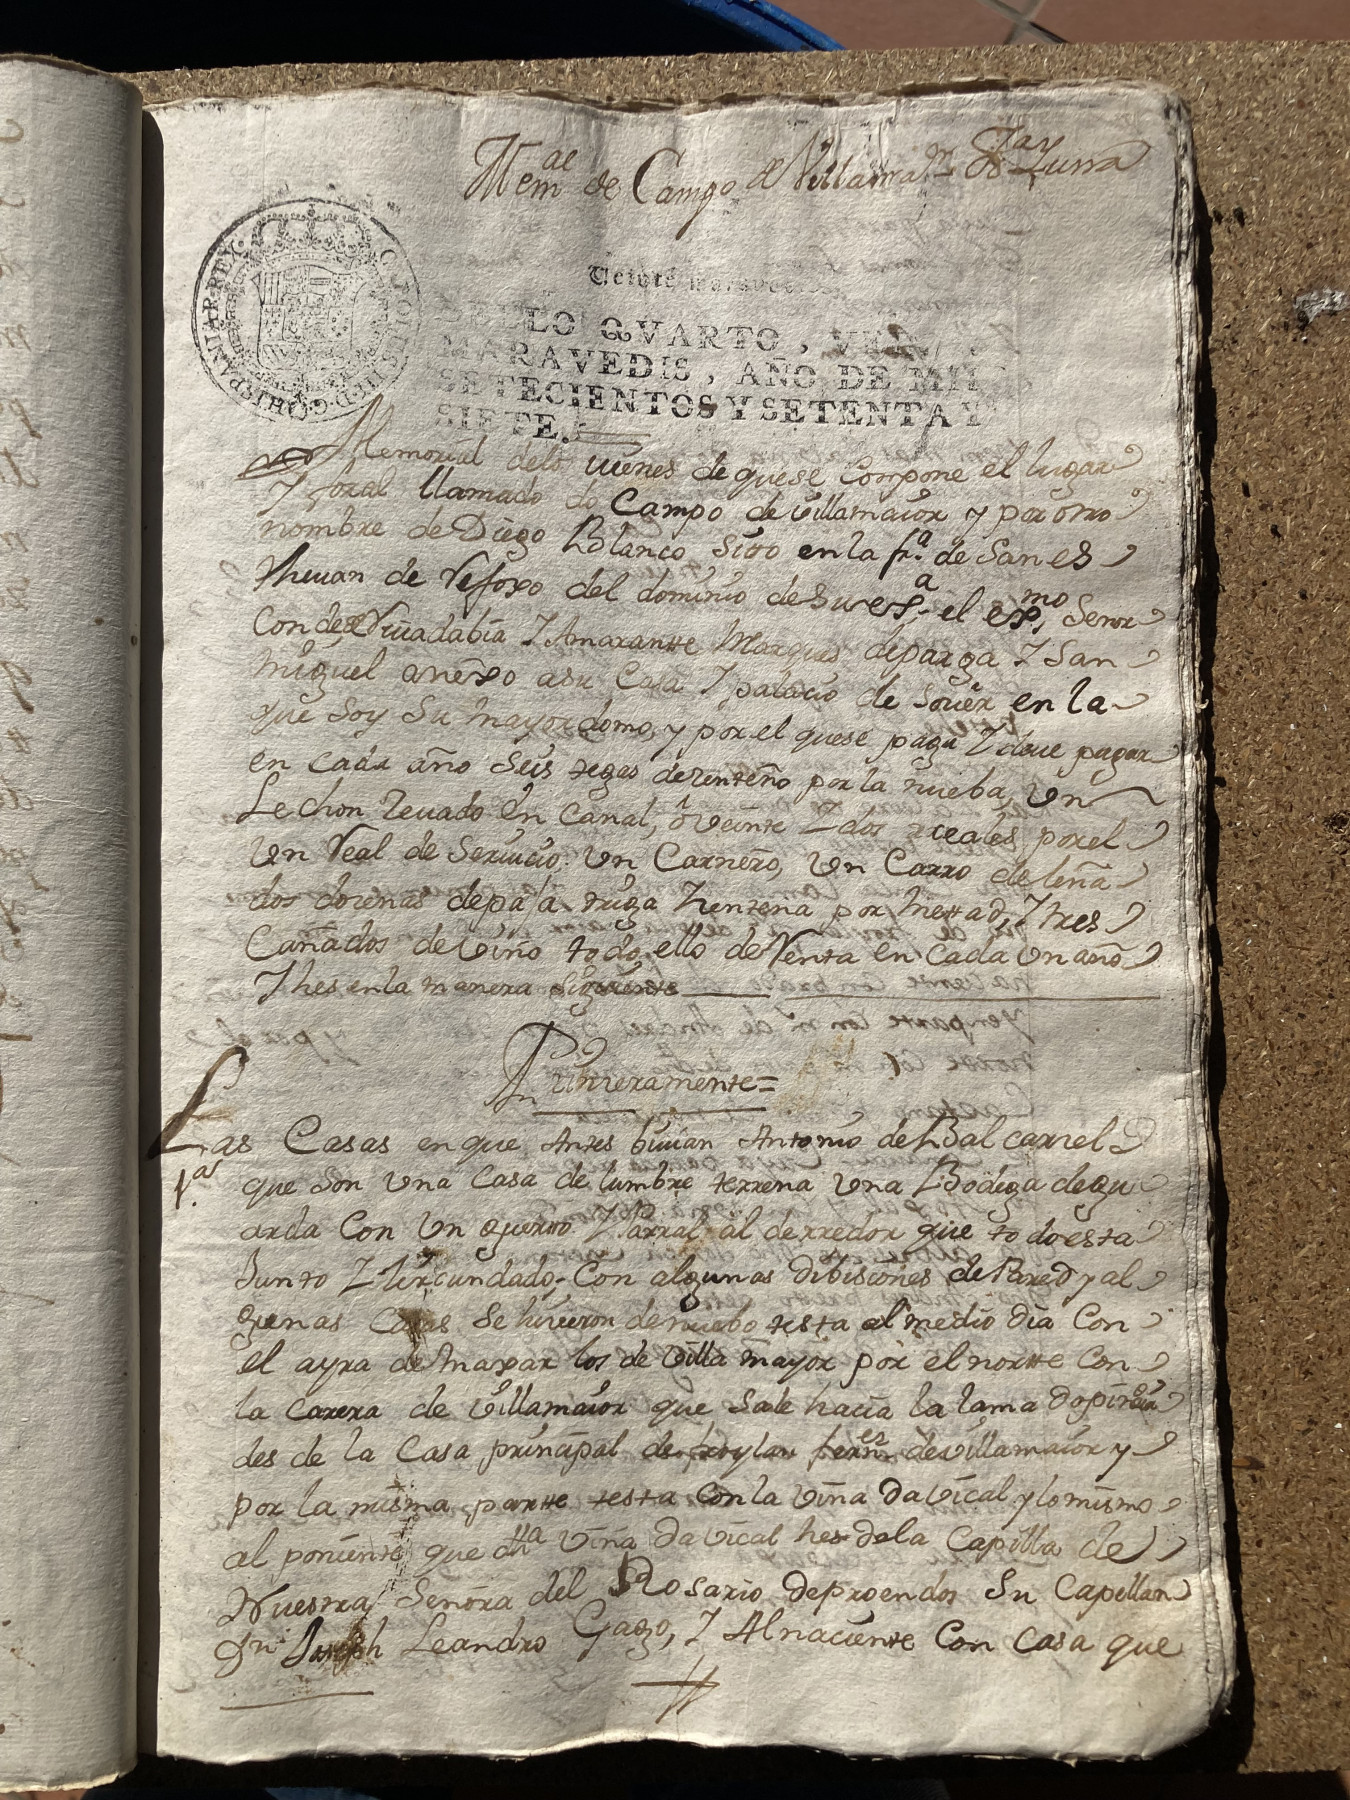 Mem.ae de Campo de Villama.r
CAROLUS III D G HISPANIAR REX
Veinte maravedis
SELLO QVARTO, VEINTE
MARAVEDIS, AÑO DE MIL
SETECIENTOS Y SETENTA Y
SIETE.
Memorial delos vienes de quese compone el lugar
Y foral llamado do Campo de villamaior y por otro
nombre de Diego Blanco sitto en la fr.a de San es
thevan de Vefoxo del dominio de su ex.a el ex.mo Señor
Conde de Viuadabia Y Amarantte Marques deparga Y San
Miguel anexo asu Casa Y palacio de Souer en la
que soy su mayordomo, y por el quese paga Y deve pagar
en cada año seis tegas dezenteño por la nueba, Un
Lechon Zevado en Canal, ô veinte Y dos rreales por el
Un Real de Servicio: Un Carnero, Un Carro de leña
dos dozenas depaja triga Y zentena por mettad, Y tres
Cañados de vino todo ello de Renta en Cada Un año
Y hes en la manera siguiente
Primeramente=
1.as
Las Casas en que Antes bivian Antonio de Balcarzel
que son Una Casa de lumbre terrena Una Bodega degu
arda Con Un querto Y Parral al derredor que todo esta
Junto Y zircundado, Con algunas dibisiones de Pared y al
gunas Casas se hizieron denuebo testa al medio dia Con
el ayra de maxar los de Villa mayor por el nortte Con
la Carrera de Villamaior que sale hacia la lama
des de la Casa prinzipal de froylan fern.es de villamaior y
por la misma partte testa Con la Viña da Vical y lo mismo
al poniente que dha Viña da Vical hes dela Capilla de
Nuestra Señora del Rosario deproendos Su Capellan
Dn Joseph Leandro Gago, Y Al naciente Con Casa que